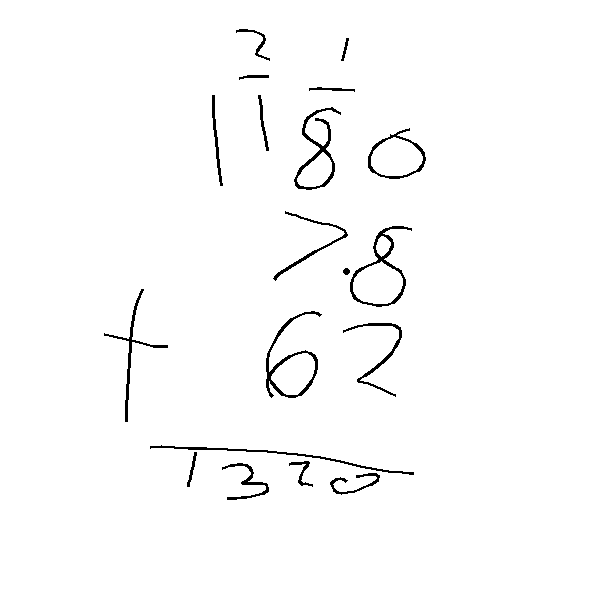 2 1
1180
7.8
+ 62
1320